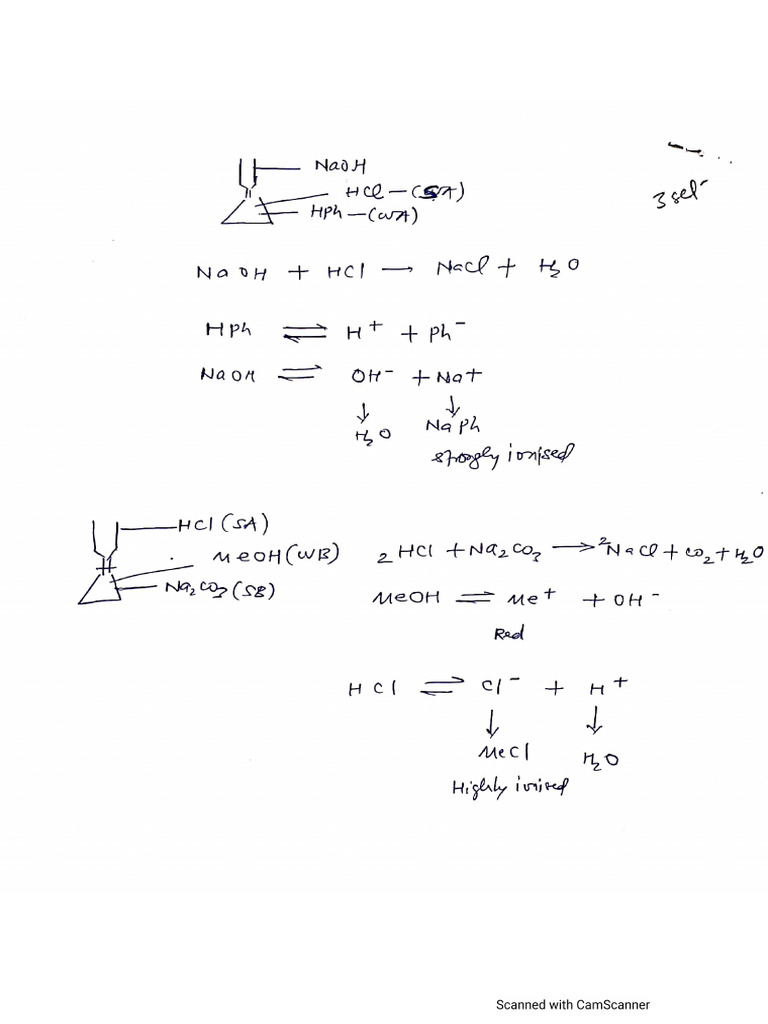 NaOH
HCl — (SA)
HPh — (WA)
3 sel-
NaOH + HCl → NaCl + H₂O
HPh ⇌ H⁺ + Ph⁻
NaOH ⇌ OH⁻ + Na+
↓ ↓
H₂O NaPh
strongly ionised
HCl (SA)
MeOH (WB)
Na₂CO₃ (SB)
2 HCl + Na₂CO₃ → 2NaCl + CO₂ + H₂O
MeOH ⇌ Me⁺ + OH⁻
Red
HCl ⇌ Cl⁻ + H⁺
↓ ↓
MeCl H₂O
Highly ionised
Scanned with CamScanner